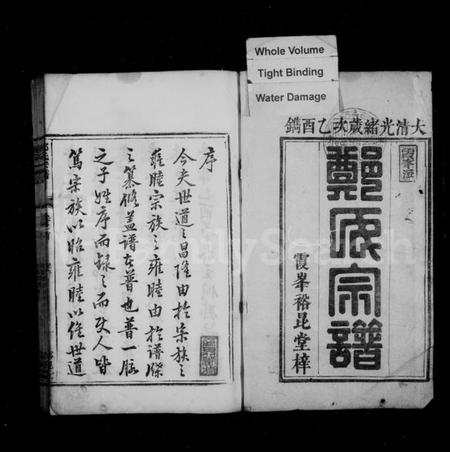 Whole Volume
Tight Binding
Water Damage
大清光緒歲次乙酉鐫
鄭氏宗譜
霞峯裕昆堂梓
序
今夫世道之昌隆由於宗族之
雍睦宗族之雍睦由於譜牒
之纂修蓋譜者普也普一脈
之子姓序而錄之而使人皆
篤宗族以昭雍睦以維世道
FamilySearch